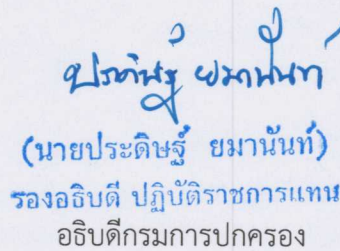 ประดิษฐ์ ยมานันท์
(นายประดิษฐ์ ยมานันท์)
รองอธิบดี ปฏิบัติราชการแทน
อธิบดีกรมการปกครอง